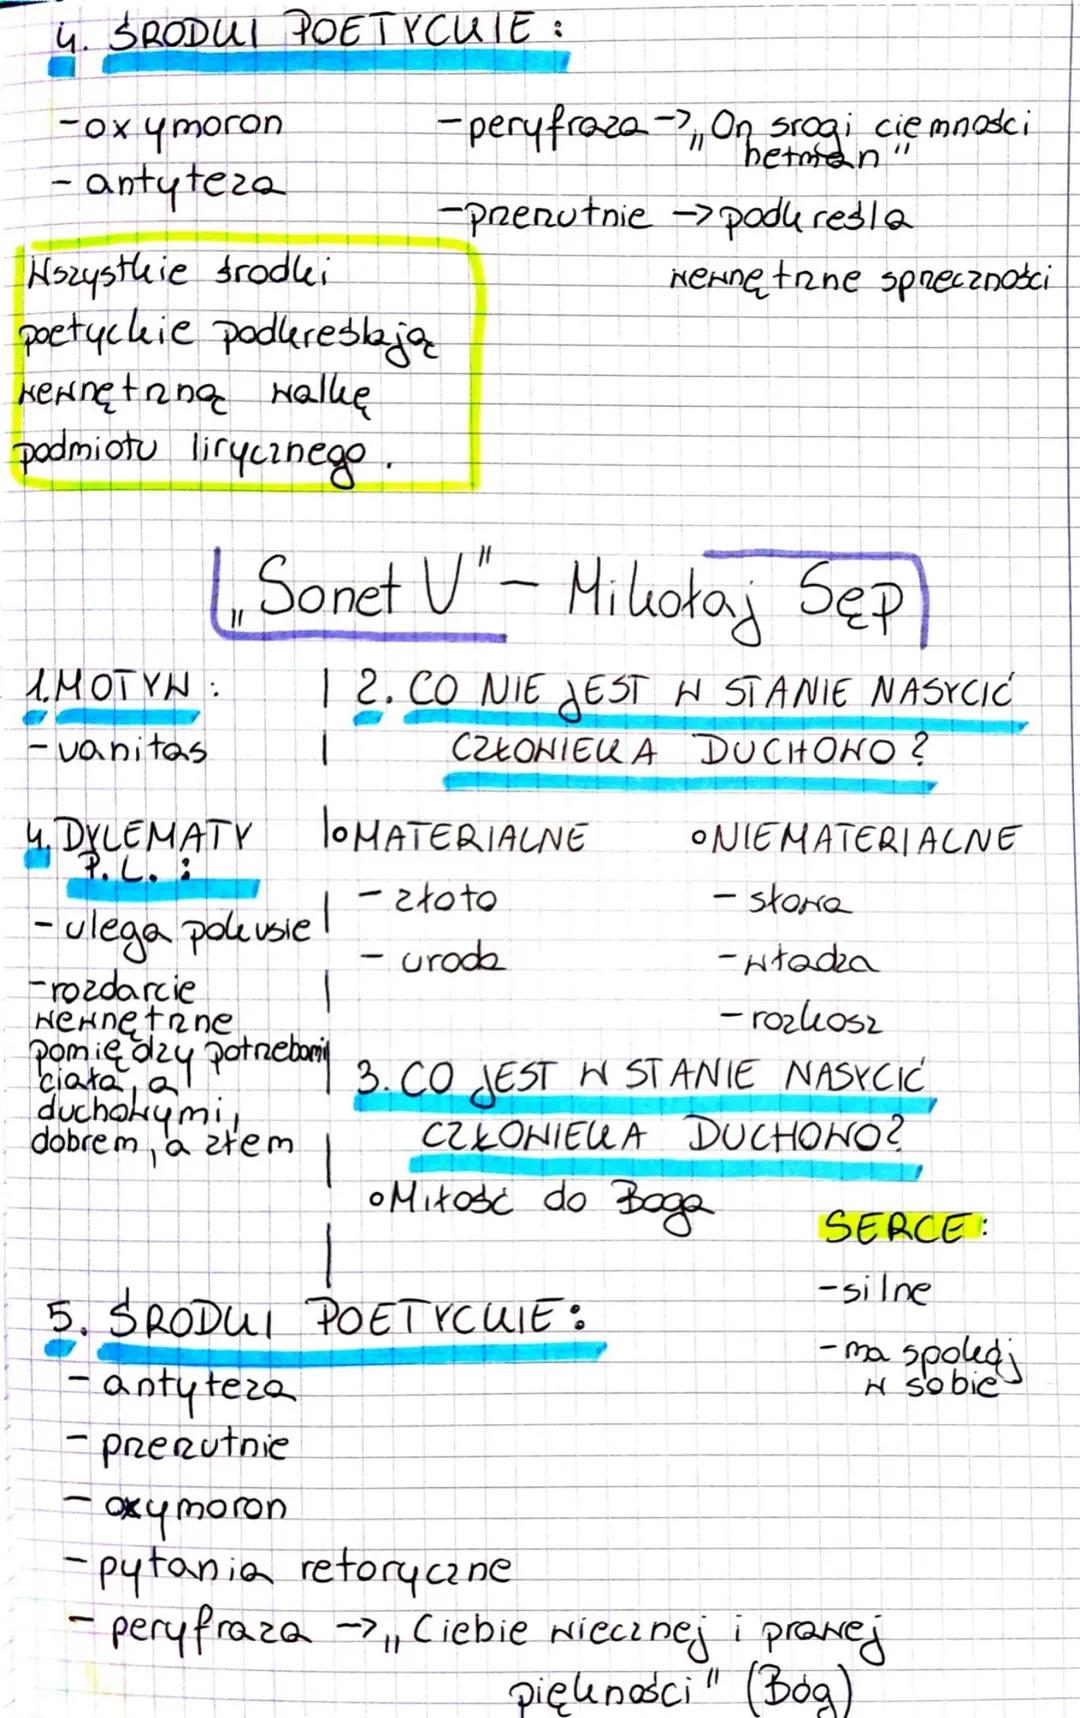 4. ŚRODKI POETYCKIE :
- oxymoron
- antyteza
- peryfraza -> „On srogi ciemności
hetman"
- przerzutnie -> podkreśla
wewnętrzne sprzeczności
Wszystkie środki
poetyckie podkreślają
wewnętrzną walkę
podmiotu lirycznego.
„Sonet V" - Mikołaj Sęp
1. MOTYW :
- vanitas
2. CO NIE JEST W STANIE NASYCIĆ
CZŁOWIEKA DUCHOWO ?
4. DYLEMATY
P. L. :
- ulega pokusie
- rozdarcie
wewnętrzne
pomiędzy potrzebami
ciała, a
duchowymi,
dobrem, a złem
o MATERIALNE
- złoto
- uroda
o NIEMATERIALNE
- sława
- władza
- rozkosz
3. CO JEST W STANIE NASYCIĆ
CZŁOWIEKA DUCHOWO?
o Miłość do Boga
SERCE :
- silne
- ma spokój
w sobie
5. ŚRODKI POETYCKIE :
- antyteza
- przerzutnie
- oxymoron
- pytania retoryczne
- peryfraza -> „Ciebie wiecznej i prawej
piękności" (Bóg)